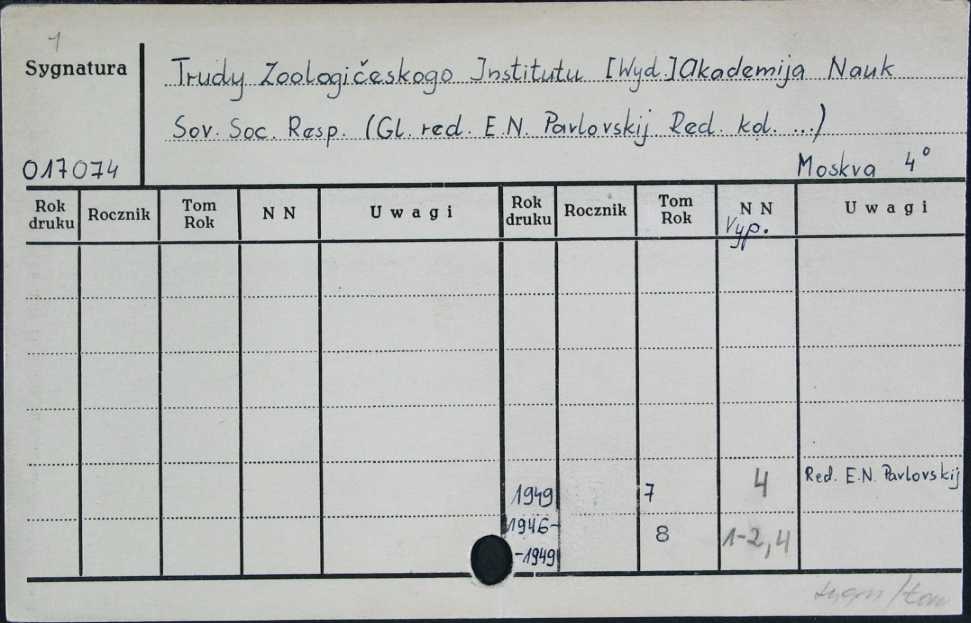 1
Sygnatura
Trudy Zoologičeskogo Institutu [Wyd.] Akademija Nauk
Sov. Soc. Resp. (Gl. red. E.N. Pavlovskij Red. kol. ...)
017074
Moskva 4°
Rok druku Rocznik Tom Rok N N Uwagi Rok druku Rocznik Tom Rok N N Uwagi
Vyp.
1949 7 4 Red. E.N. Pavlovskij
1946-
-1949 8 1-2,4